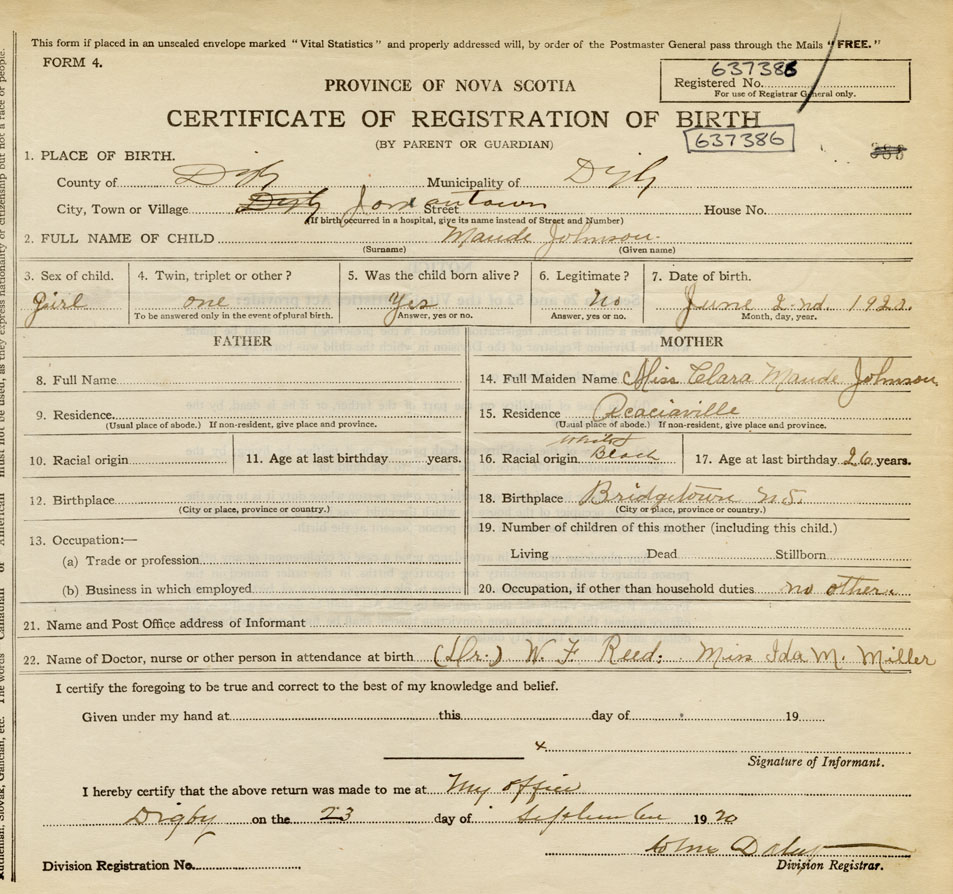 This form if placed in an unsealed envelope marked "Vital Statistics" and properly addressed will, by order of the Postmaster General pass through the Mails "FREE."
FORM 4.
637386
Registered No.
For use of Registrar General only.
PROVINCE OF NOVA SCOTIA
CERTIFICATE OF REGISTRATION OF BIRTH
(BY PARENT OR GUARDIAN)
637386
1. PLACE OF BIRTH.
County of Digby Municipality of Digby
City, Town or Village Digby Jordantown Street House No.
(If birth occurred in a hospital, give its name instead of Street and Number)
2. FULL NAME OF CHILD Maude Johnson.
(Surname) (Given name)
3. Sex of child. 4. Twin, triplet or other? 5. Was the child born alive? 6. Legitimate? 7. Date of birth.
girl one Yes No June 2nd.
To be answered only in the event of plural birth. Answer, yes or no. Answer, yes or no. Month, day, year.
FATHER MOTHER
8. Full Name 14. Full Maiden Name Miss Clara Maude Johnson
9. Residence. 15. Residence Acaciaville
(Usual place of abode.) If non-resident, give place and province. (Usual place of abode.) If non-resident, give place and province.
White
10. Racial origin 11. Age at last birthday years. 16. Racial origin Black 17. Age at last birthday 26 years.
12. Birthplace 18. Birthplace Bridgetown N.S.
(City or place, province or country.) (City or place, province or country.)
13. Occupation:— 19. Number of children of this mother (including this child.)
(a) Trade or profession Living Dead Stillborn
(b) Business in which employed 20. Occupation, if other than household duties no other.
21. Name and Post Office address of Informant
22. Name of Doctor, nurse or other person in attendance at birth (Dr.) W. F Reed. Miss Ida M. Miller
I certify the foregoing to be true and correct to the best of my knowledge and belief.
Given under my hand at this day of 19
x
Signature of Informant.
I hereby certify that the above return was made to me at My office
Digby on the 23 day of September 19
Division Registration No. Division Registrar.